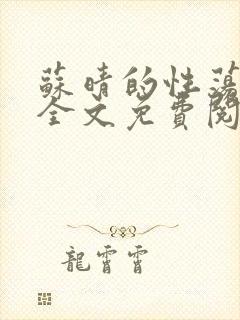 蘇晴的性蕩
全文免費閱
龍霄霄